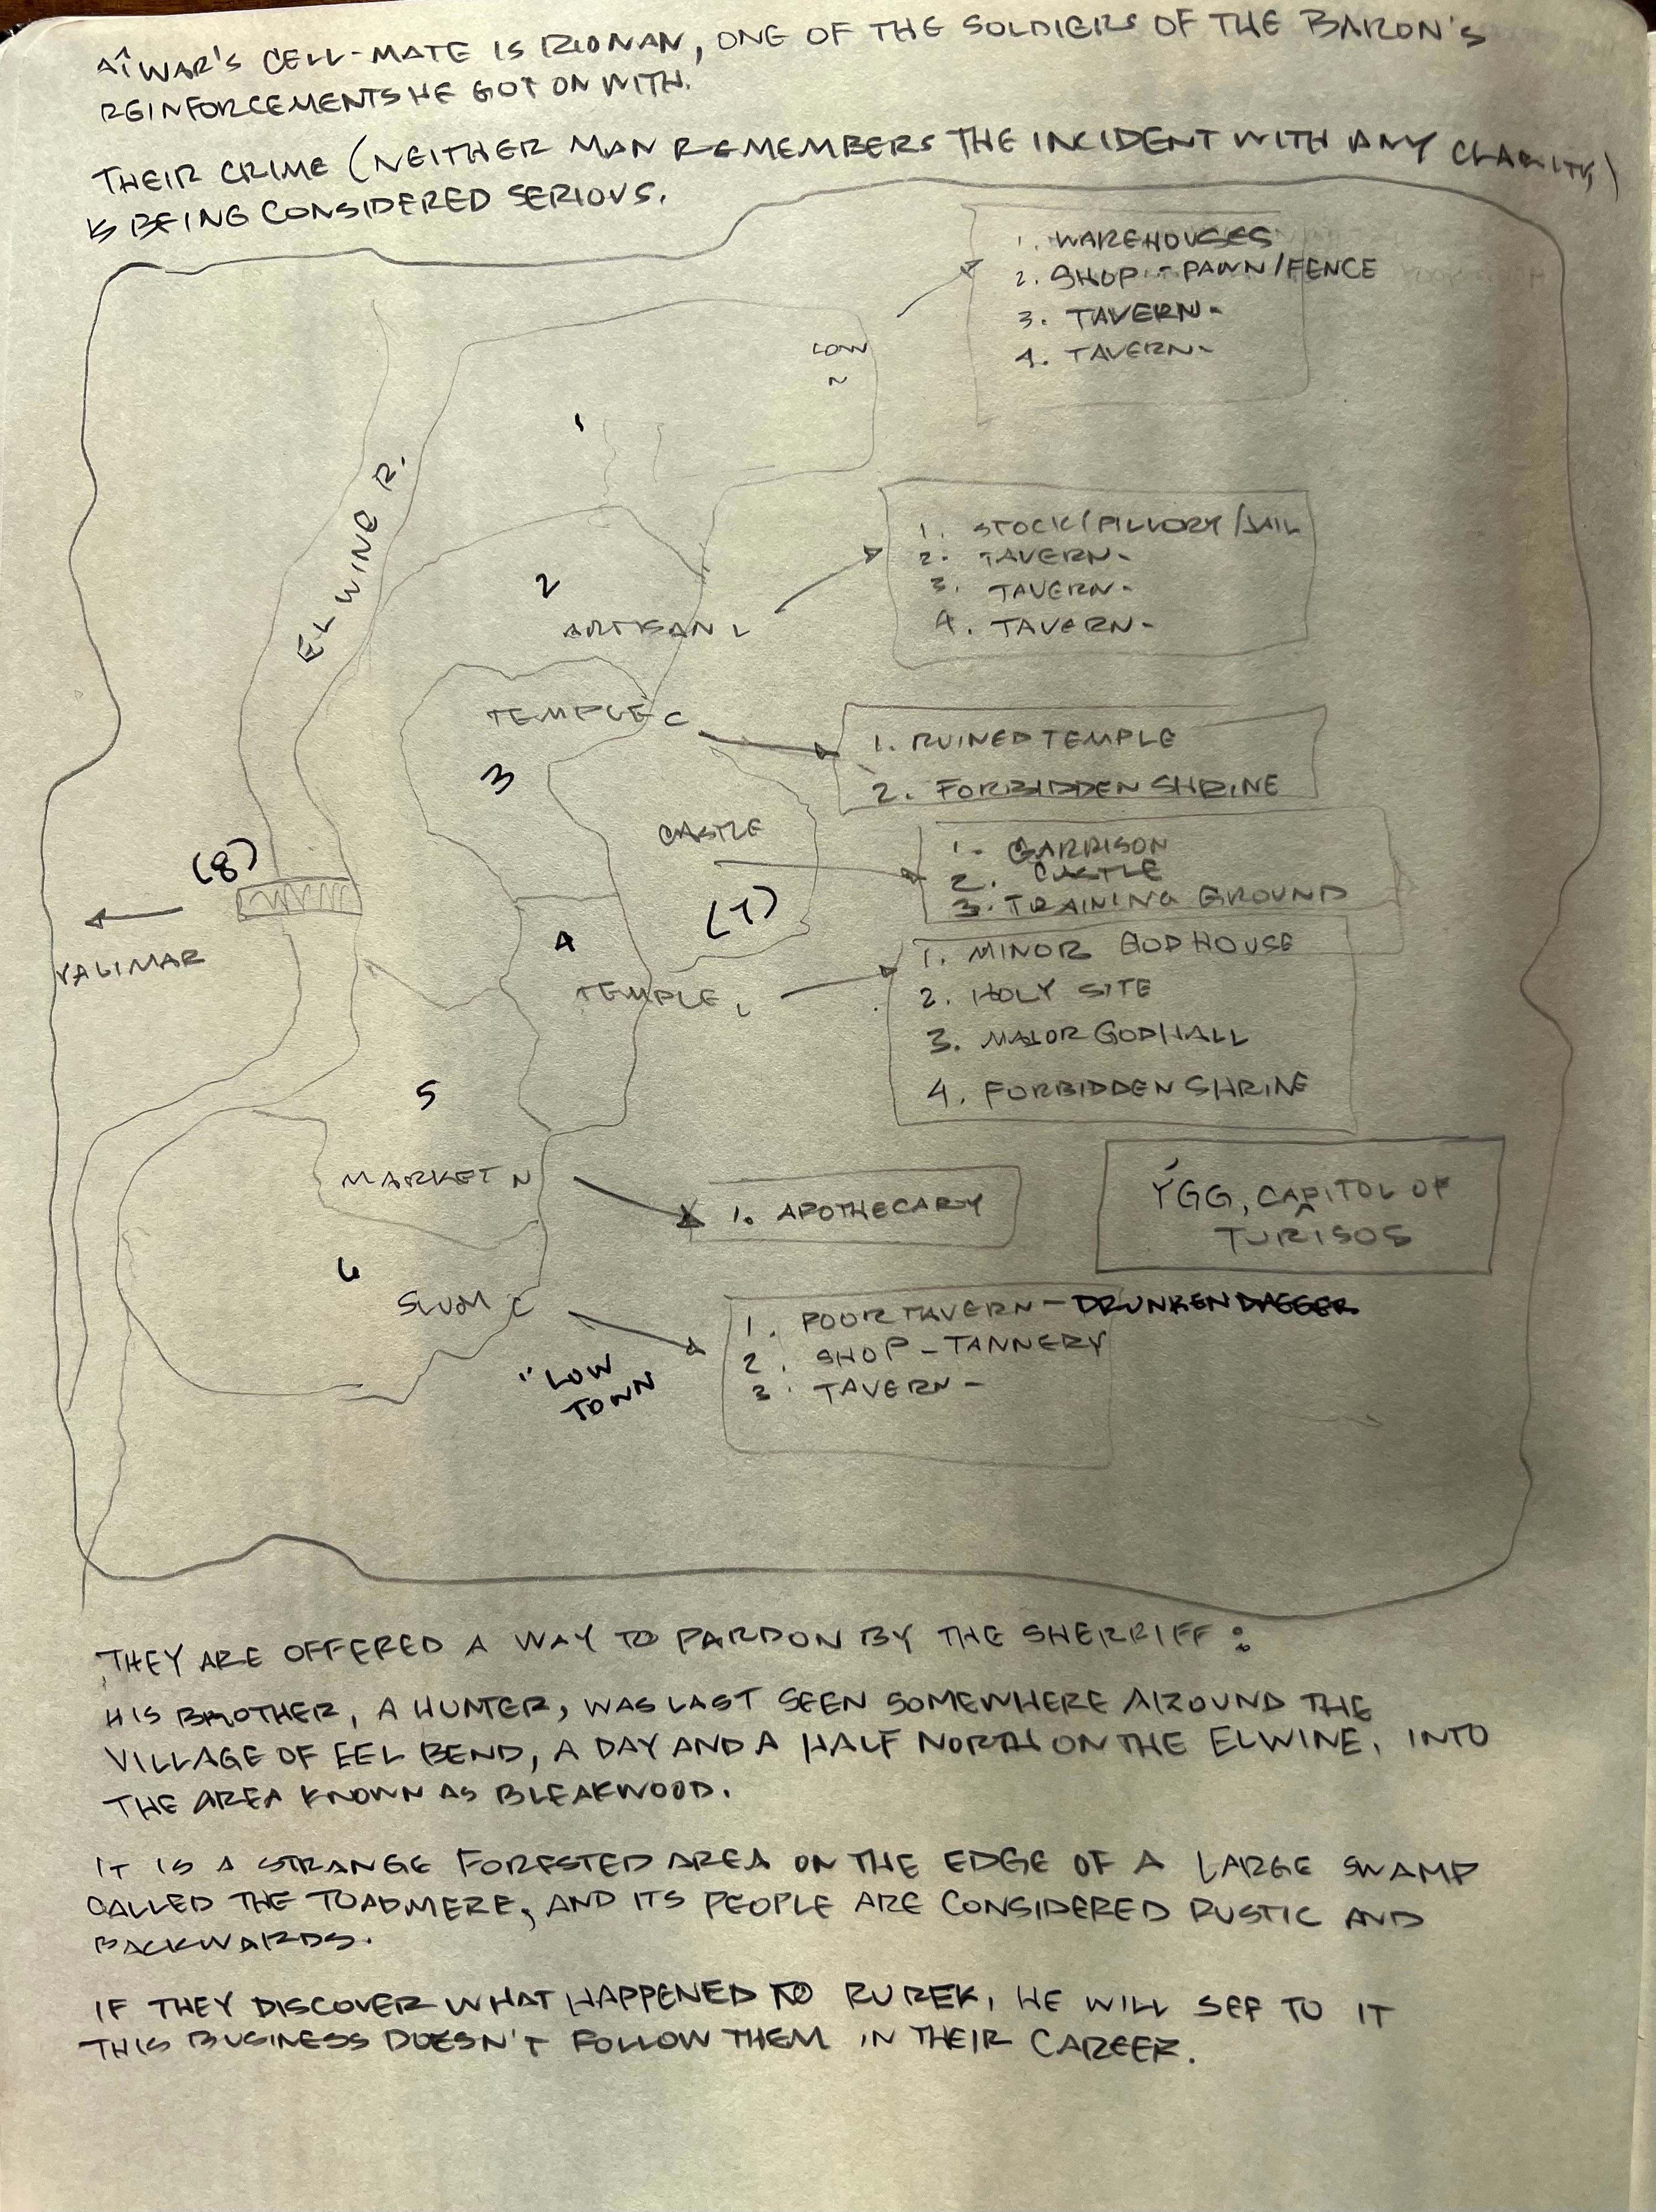 AÎWAR'S CELL-MATE IS RONAN, ONE OF THE SOLDIERS OF THE BARON'S
REINFORCEMENTS HE GOT ON WITH.
THEIR CRIME (NEITHER MAN REMEMBERS THE INCIDENT WITH ANY CLARITY)
IS BEING CONSIDERED SERIOUS.
1. WAREHOUSES
2. SHOP - PAWN/FENCE
3. TAVERN -
4. TAVERN -
LOW
N
1
ELWINE R.
1. STOCK/PILLORY/JAIL
2. TAVERN -
3. TAVERN -
4. TAVERN -
2
ARTISAN L
TEMPLE C
1. RUINED TEMPLE
2. FORBIDDEN SHRINE
3
CASTLE
1. GARRISON
2. CASTLE
3. TRAINING GROUND
(8)
(7)
VALIMAR
4
TEMPLE L
1. MINOR GODHOUSE
2. HOLY SITE
3. MAJOR GODHALL
4. FORBIDDEN SHRINE
5
MARKET N
1. APOTHECARY
ÝGG, CAPITOL OF
TURISOS
6
SLUM C
"LOW
TOWN
1. POOR TAVERN - DRUNKEN DAGGER
2. SHOP - TANNERY
3. TAVERN -
THEY ARE OFFERED A WAY TO PARDON BY THE SHERRIFF:
HIS BROTHER, A HUNTER, WAS LAST SEEN SOMEWHERE AROUND THE
VILLAGE OF EEL BEND, A DAY AND A HALF NORTH ON THE ELWINE, INTO
THE AREA KNOWN AS BLEAKWOOD.
IT IS A STRANGE FORESTED AREA ON THE EDGE OF A LARGE SWAMP
CALLED THE TOADMERE, AND ITS PEOPLE ARE CONSIDERED RUSTIC AND
BACKWARDS.
IF THEY DISCOVER WHAT HAPPENED TO RUREK, HE WILL SEE TO IT
THIS BUSINESS DOESN'T FOLLOW THEM IN THEIR CAREER.